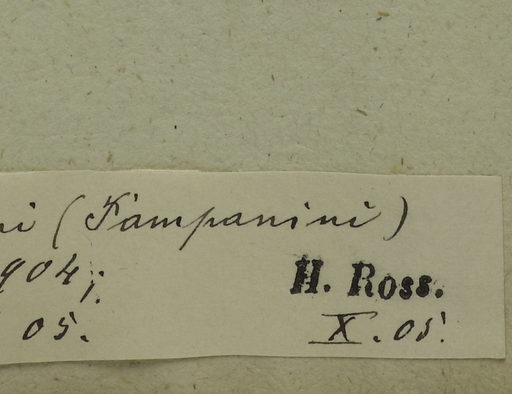 ni (Pampanini)
904; H. Ross.
05. X.05.